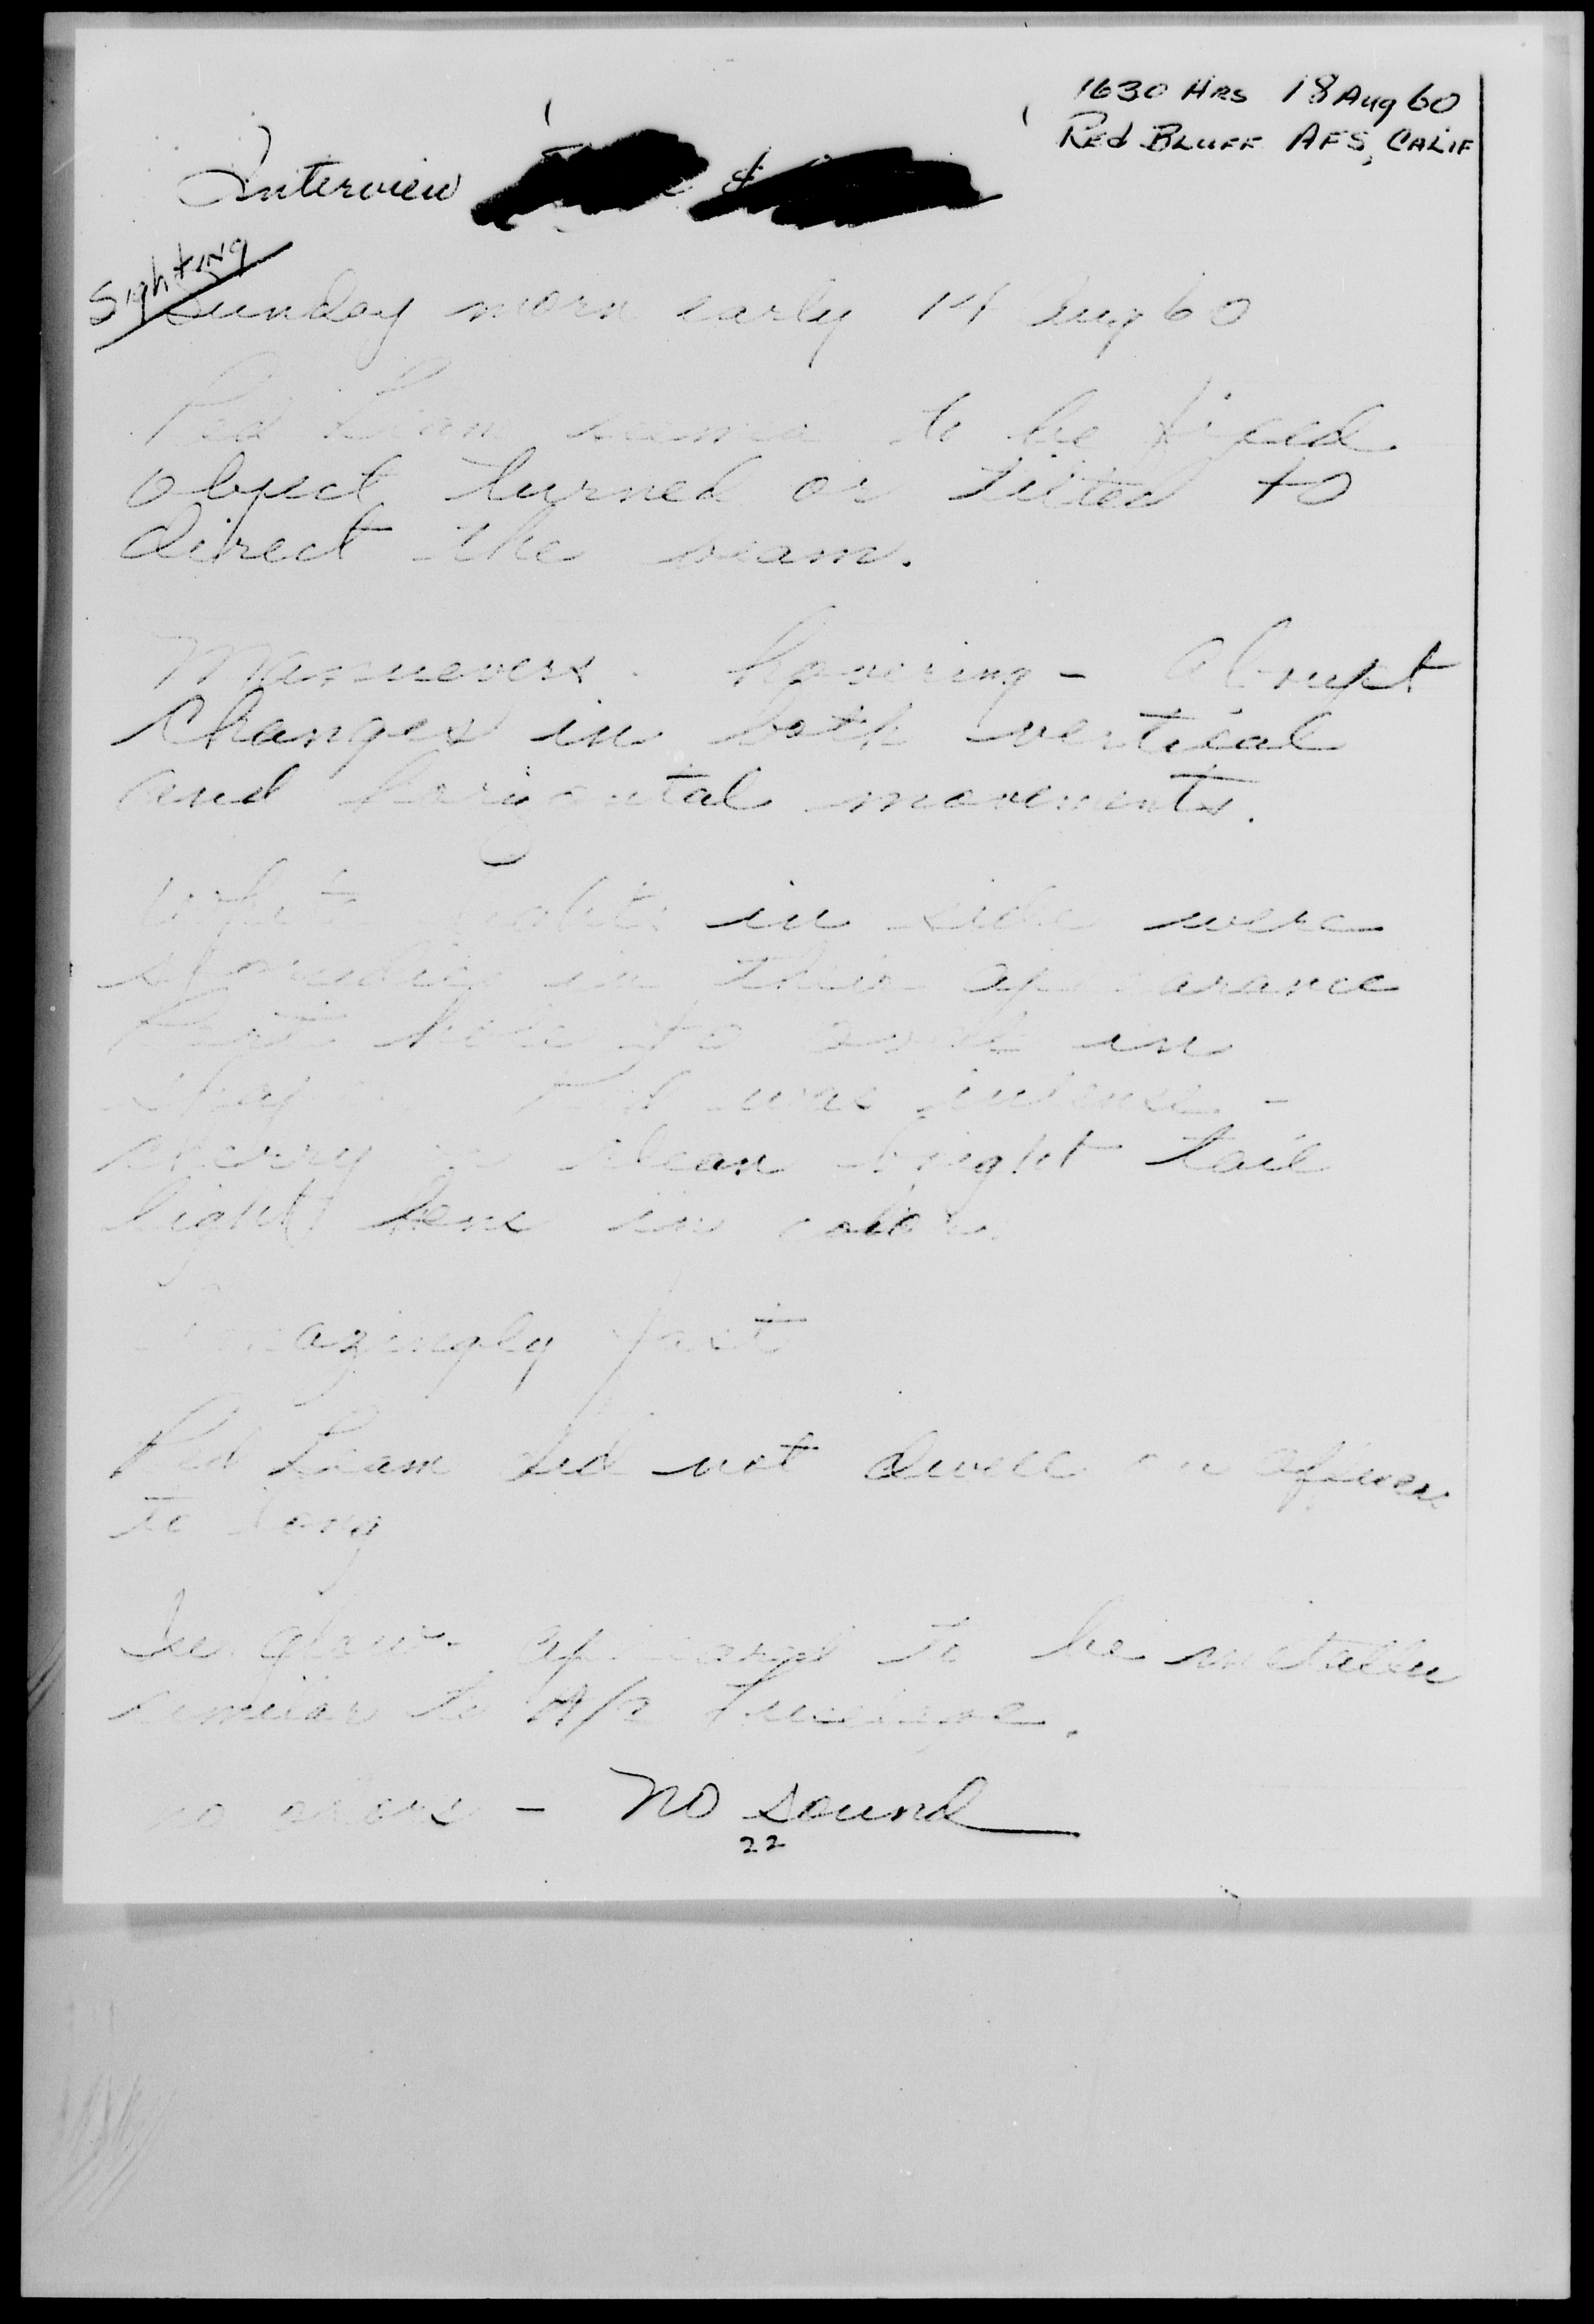 1630 HRS 18 Aug 60
Red Bluff AFS, Calif
Interview &
Sighting
Sunday morn early 14 Aug 60
Red beam seemed to be fixed
object turned or tilted to
direct the beam.
Mannuevers - hovering - abrupt
changes in both vertical
and horizontal movements.
White lights in side were
sporadic in their appearance
Port hole to oval in
shape. Red was intense -
cherry or clean bright tail
light lens in color.
Amazingly fast
Red beam did not dwell on officers
to long
In glow appeared to be metallic
similar to A/C fuselage.
no odors - No sound
22